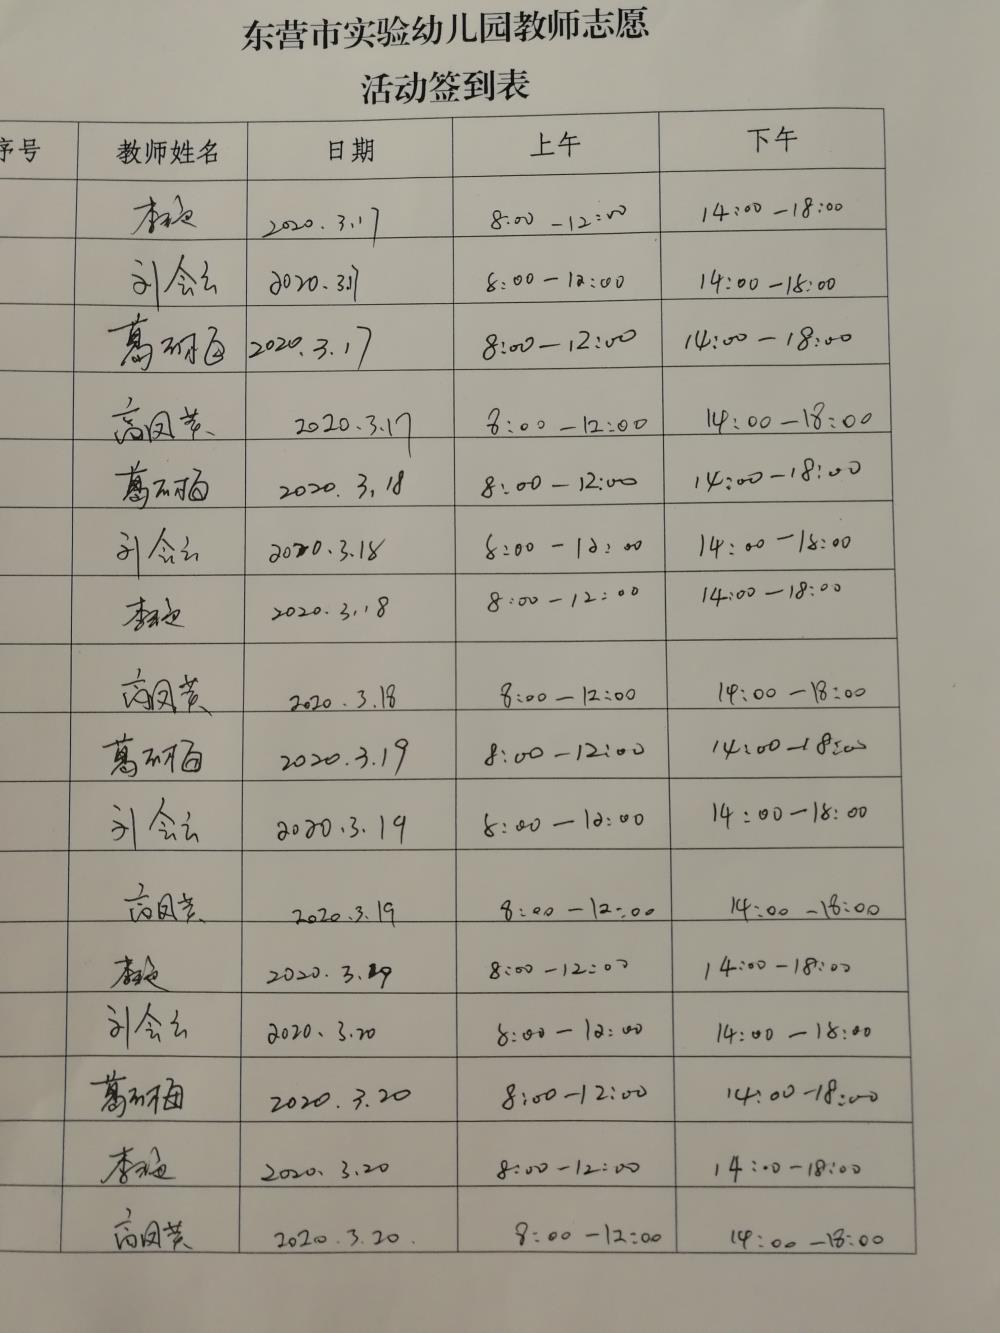 东营市实验幼儿园教师志愿
活动签到表
序号 教师姓名 日期 上午 下午
李 2020.3.17 8:00-12:00 14:00-18:00
刘会云 2020.3.17 8:00-12:00 14:00-18:00
葛丽梅 2020.3.17 8:00-12:00 14:00-18:00
高凤英 2020.3.17 8:00-12:00 14:00-18:00
葛丽梅 2020.3.18 8:00-12:00 14:00-18:00
刘会云 2020.3.18 8:00-12:00 14:00-18:00
李 2020.3.18 8:00-12:00 14:00-18:00
高凤英 2020.3.18 8:00-12:00 14:00-18:00
葛丽梅 2020.3.19 8:00-12:00 14:00-18:00
刘会云 2020.3.19 8:00-12:00 14:00-18:00
高凤英 2020.3.19 8:00-12:00 14:00-18:00
李 2020.3.19 8:00-12:00 14:00-18:00
刘会云 2020.3.20 8:00-12:00 14:00-18:00
葛丽梅 2020.3.20 8:00-12:00 14:00-18:00
李 2020.3.20 8:00-12:00 14:00-18:00
高凤英 2020.3.20. 8:00-12:00 14:00-18:00